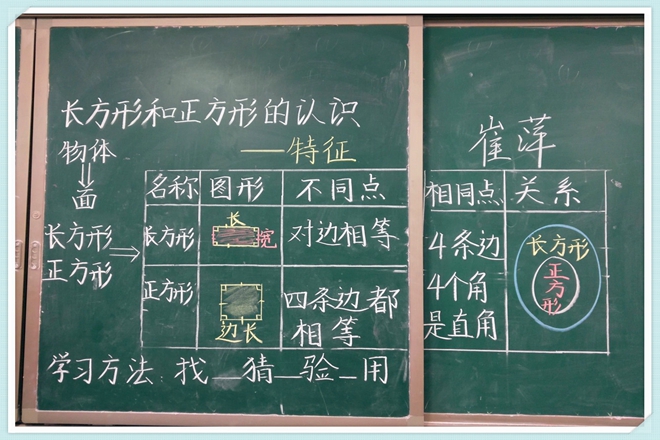 长方形和正方形的认识
——特征
崔萍
物体
面
长方形
正方形
名称 图形 不同点 相同点 关系
长方形 长 宽 对边相等
正方形 边长 四条边都
相等
4条边
4个角
是直角
长方形
正方形
学习方法:找—猜—验—用